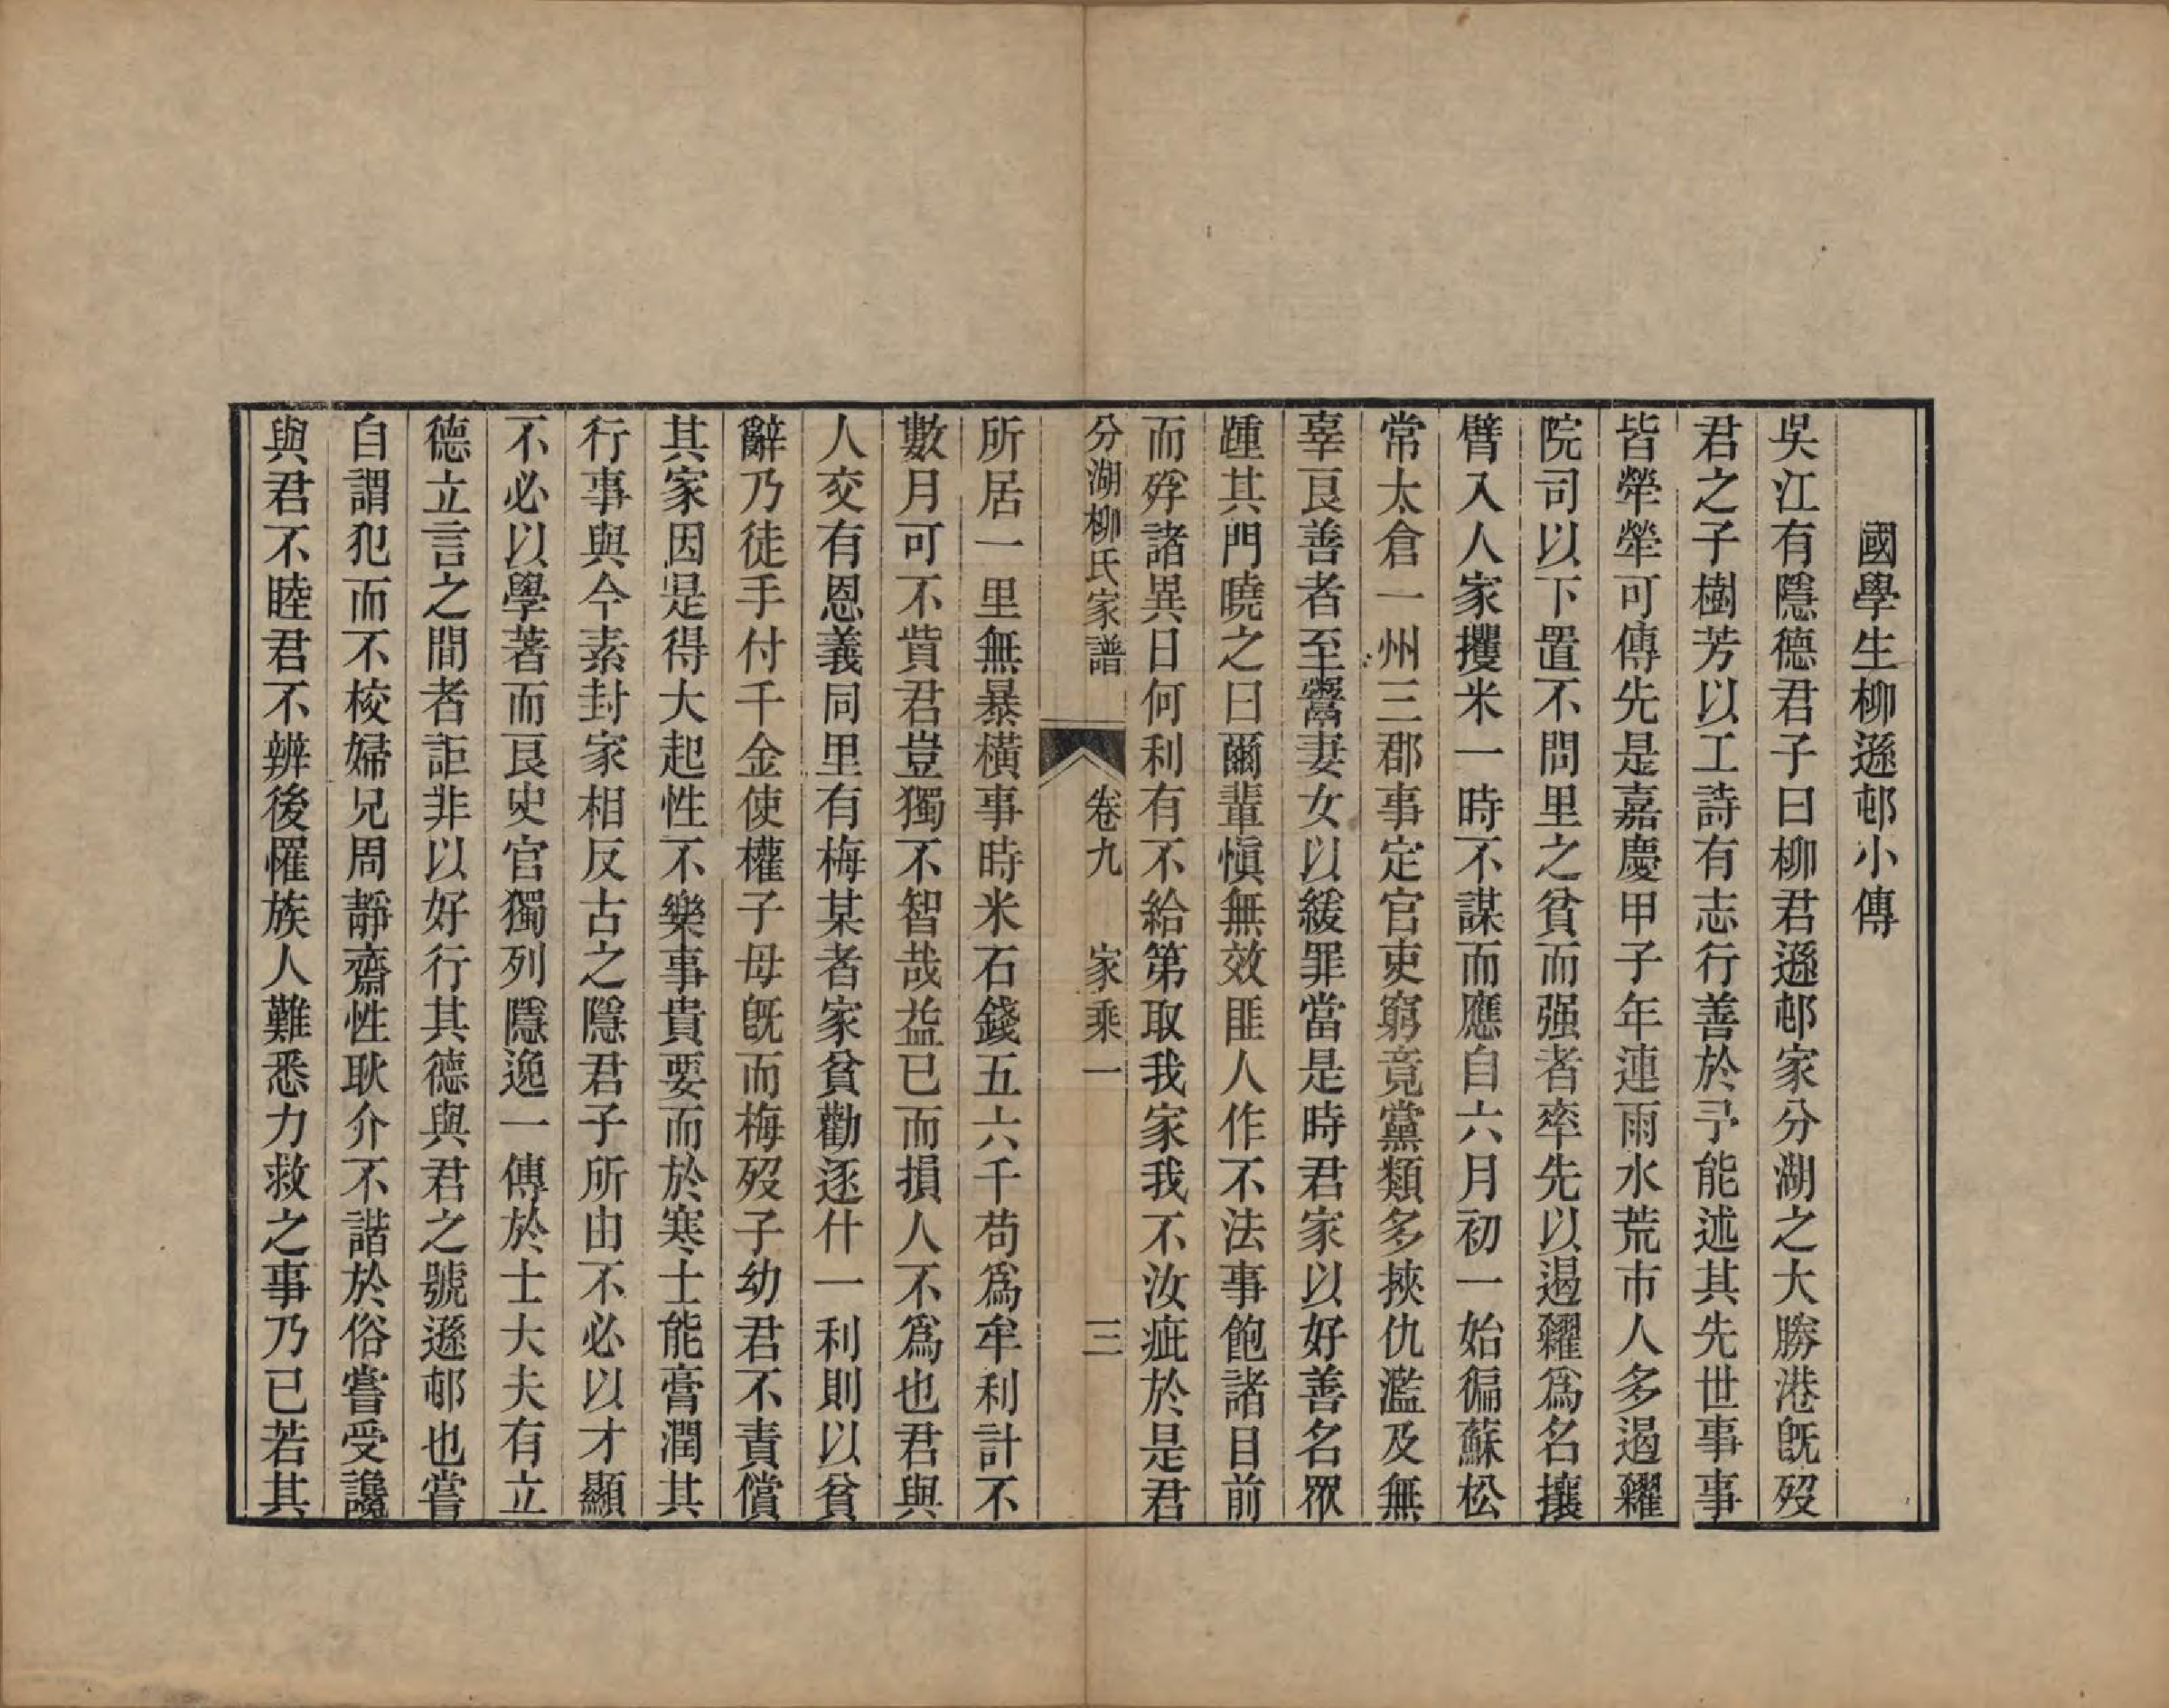 國學生柳遜邨小傳
吳江有隱德君子曰柳君遜邨家分湖之大勝港旣歿
君之子樹芳以工詩有志行善於予能述其先世事事
皆犖犖可傳先是嘉慶甲子年連雨水荒市人多遏糶
院司以下置不問里之貧而强者率先以遏糶爲名攘
臂入人家攫米一時不謀而應自六月初一始徧蘇松
常太倉一州三郡事定官吏窮竟黨類多挾仇濫及無
辜良善者至鬻妻女以緩罪當是時君家以好善名眾
踵其門曉之曰爾輩愼無效匪人作不法事飽諸目前
而殍諸異日何利有不給第取我家我不汝疵於是君
分湖柳氏家譜 卷九 家乘一 三
所居一里無暴橫事時米石錢五六千苟爲牟利計不
數月可不貲君豈獨不智哉益已而損人不爲也君與
人交有恩義同里有梅某者家貧勸逐什一利則以貧
辭乃徒手付千金使權子母旣而梅歿子幼君不責償
其家因是得大起性不樂事貴要而於寒士能膏潤其
行事與今素封家相反古之隱君子所由不必以才顯
不必以學著而良史官獨列隱逸一傳於士大夫有立
德立言之間者詎非以好行其德與君之號遜邨也嘗
自謂犯而不校婦兄周靜齋性耿介不諧於俗嘗受讒
與君不睦君不辨後罹族人難悉力救之事乃已若其